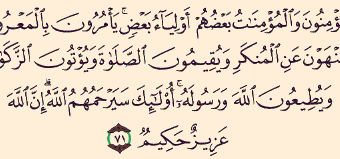 ؤْمِنُونَ وَٱلْمُؤْمِنَٰتُ بَعْضُهُمْ أَوْلِيَآءُ بَعْضٍۚ يَأْمُرُونَ بِٱلْمَعْرُو
نْهَوْنَ عَنِ ٱلْمُنكَرِ وَيُقِيمُونَ ٱلصَّلَوٰةَ وَيُؤْتُونَ ٱلزَّكَو
وَيُطِيعُونَ ٱللَّهَ وَرَسُولَهُۥٓۚ أُو۟لَٰٓئِكَ سَيَرْحَمُهُمُ ٱللَّهُۗ إِنَّ ٱللَّهَ
عَزِيزٌ حَكِيمٌ ٧١